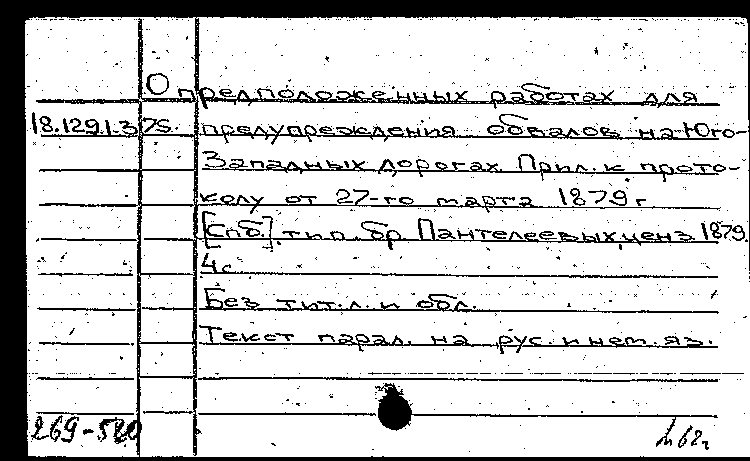 О предположенных работах для
18.129.1.375. предупреждения обвалов на Юго-
Западных дорогах. Прил. к прото-
колу от 27-го марта 1879 г
[Спб], тип. бр. Пантелеевых, ценз. 1879.
4 с.
Без тит. л. и обл.
Текст парал. на рус. и нем. яз.
269-520